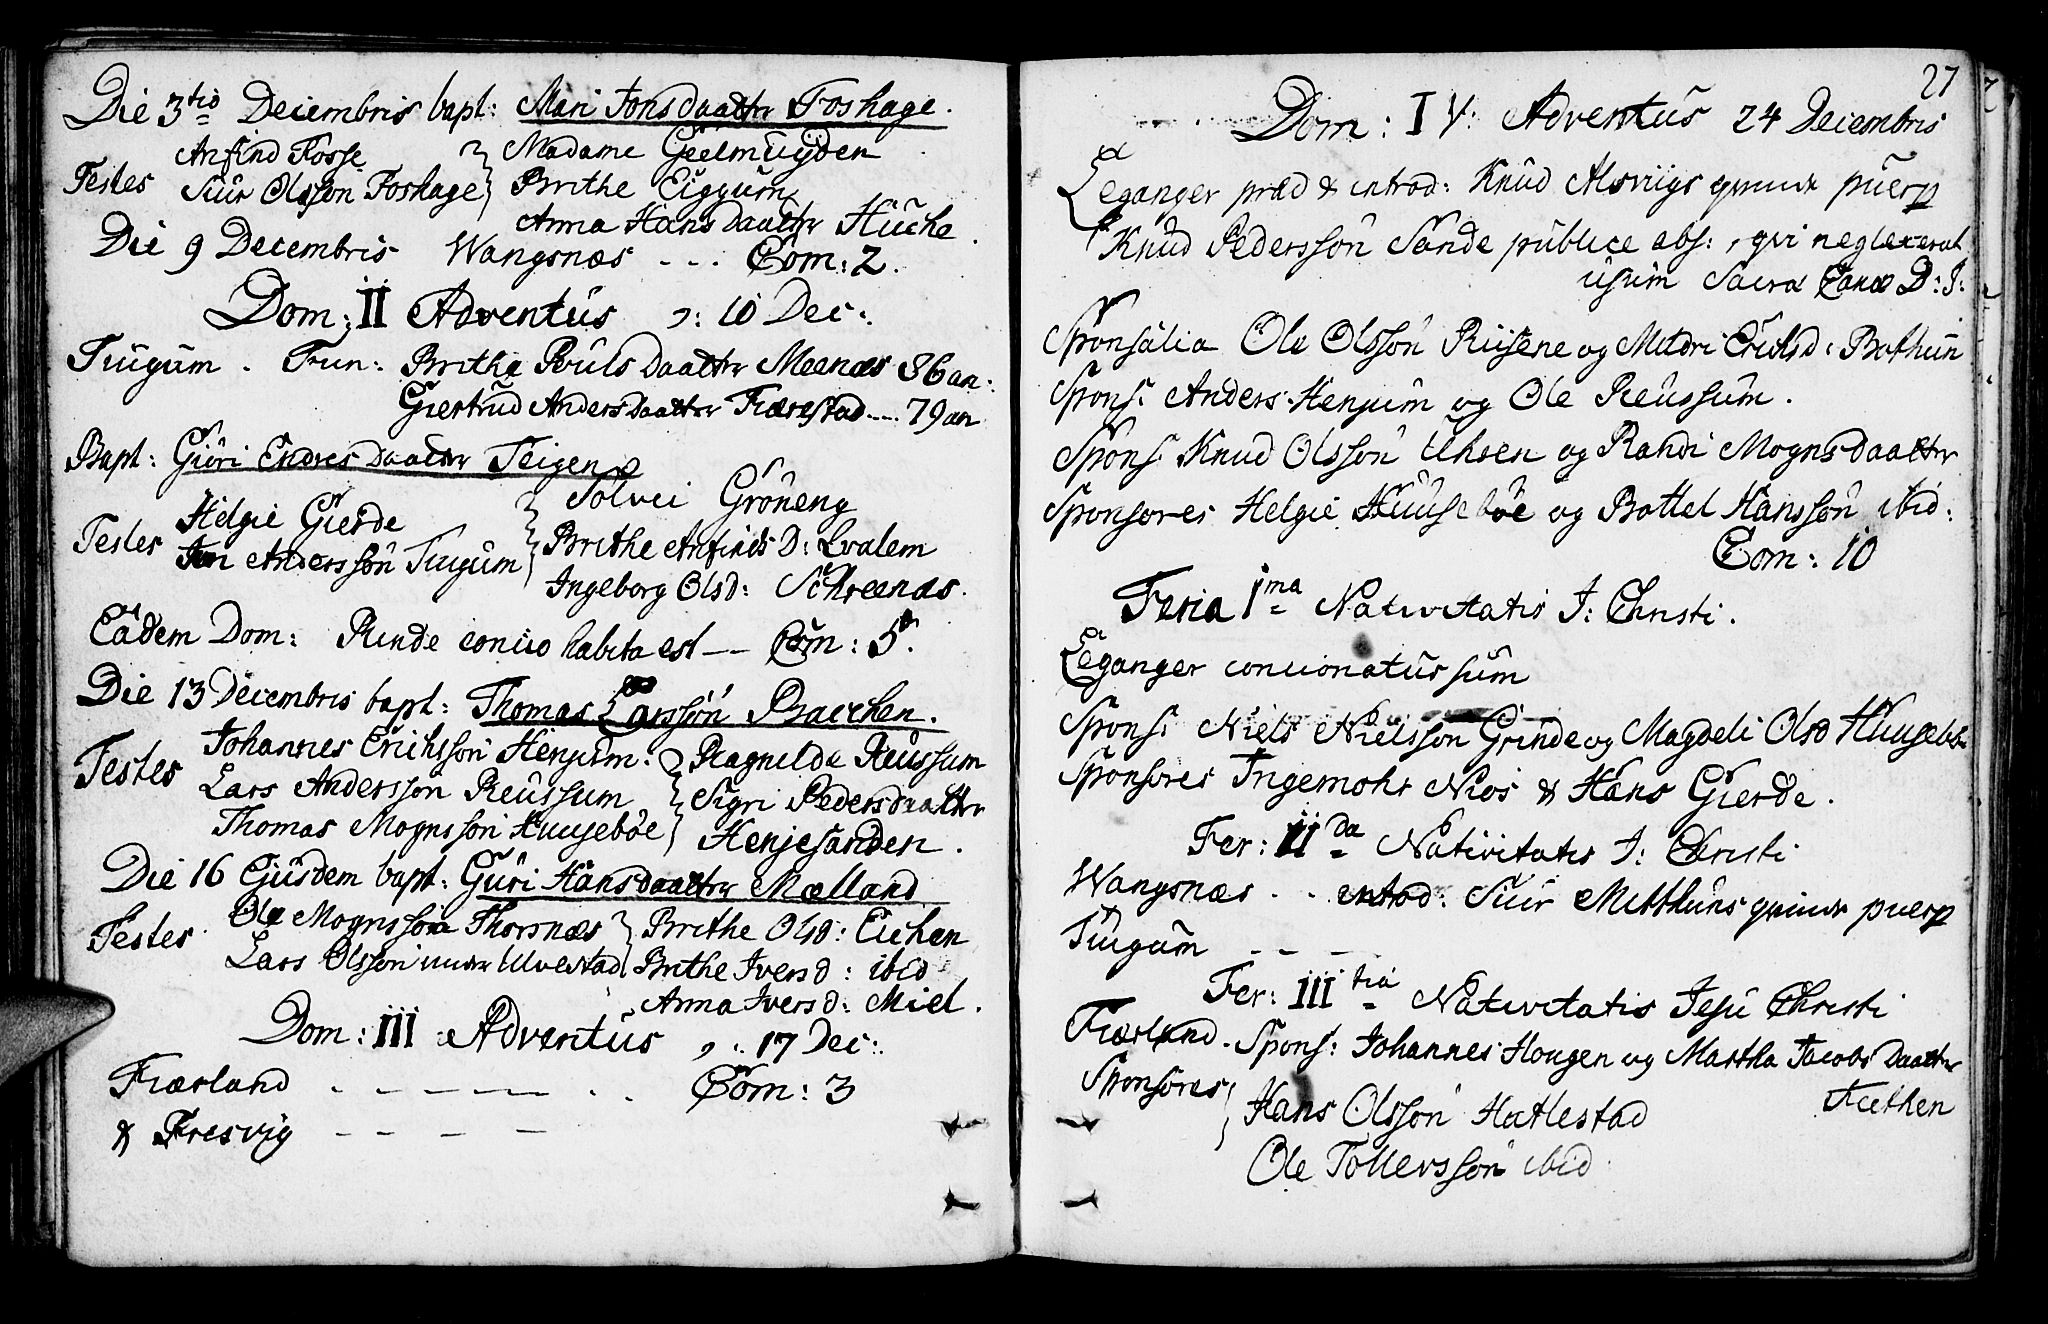 Die 3tio Deiembris bapt: Mari Jonsdaatter Foshage.
Testes Anfind Fosse } Madame Geelmuÿden
Siur Olsson Foshage } Brithe Eiggum
Anna Hansdaatter Huche.
Die 9 Decembris Wangsnæs - - - Com: 2.
Dom: II Adventus ɔ: 10 Dec:
Tiugum. Fun: Brithe Pouls daatter Meenæs 86 an:
Giertrud Andersdaatter Fiærestad .... 79 an
Bapt: Giøri Endres daatter Teigen
Testes Helgie Gierde } Sølvei Grøneng
Jon Anderssøn Tiugum } Brithe Anfinds D: Qvalem
Ingeborg Olsd: Schreenæs.
Eadem Dom: Rinde concio habita est -- Com: 5.
Die 13 Decembris bapt: Thomas Larssøn Bacchen.
Testes Johannes Erichssøn Henjum: } Ragnilda Reussum
Lars Anderssøn Reussum } Sigri Pedersdaatter
Thomas Mognssøn Huusebøe } Henjesanden.
Die 16 Ejusdem bapt: Guri Hansdaatter Mælland
Testes Ole Mognssøn Thorsnæs } Brithe Olsd: Eichen
Lars Olssøn under Ulvestad } Brithe Iversd: ibid
Anna Iversd: Miel.
Dom: III Adventus ɔ: 17 Dec:
Fiærland - - - - - - . . Com: 3
& Fresvig - - - -
27
Dom: IV: Adventus 24 Deiembris
Leganger præd & introd: Knud Alsviigs qvinde puerp
Knud Pederssøn Sande publice abs: , qvi neglexerat
usum Sacræ Cænæ D: J:
Sponsalia Ole Olssøn Riisene og Mildri Erichsd: Bothun
Spons: Anders Henjum og Ole Reussum.
Spons: Knud Olssøn Uhren og Randi Mognsdaatter
Sponsores Helgie Huusebøe og Bottel Hanssøn ibid:
Com: 10
Feria 1ma Nativitatis J: Christi.
Leganger concionatus sum
Spons: Niels Nielssøn Grinde og Magdeli Olsd Huusebø
Sponsores Ingemohr Nios & Hans Gierde.
Fer: IIda Nativitatis J: Christi
Wangsnæs . . introd: Siur Mitthuns qvinde puerp
Tiugum - - - -
Fer: IIItia Nativitatis Jesu Christi
Fiærland. Spons: Johannes Hougen og Martha Jacobs Daatter
Sponsores } Hans Olssøn Hatlestad
Ole Tollerssøn ibid